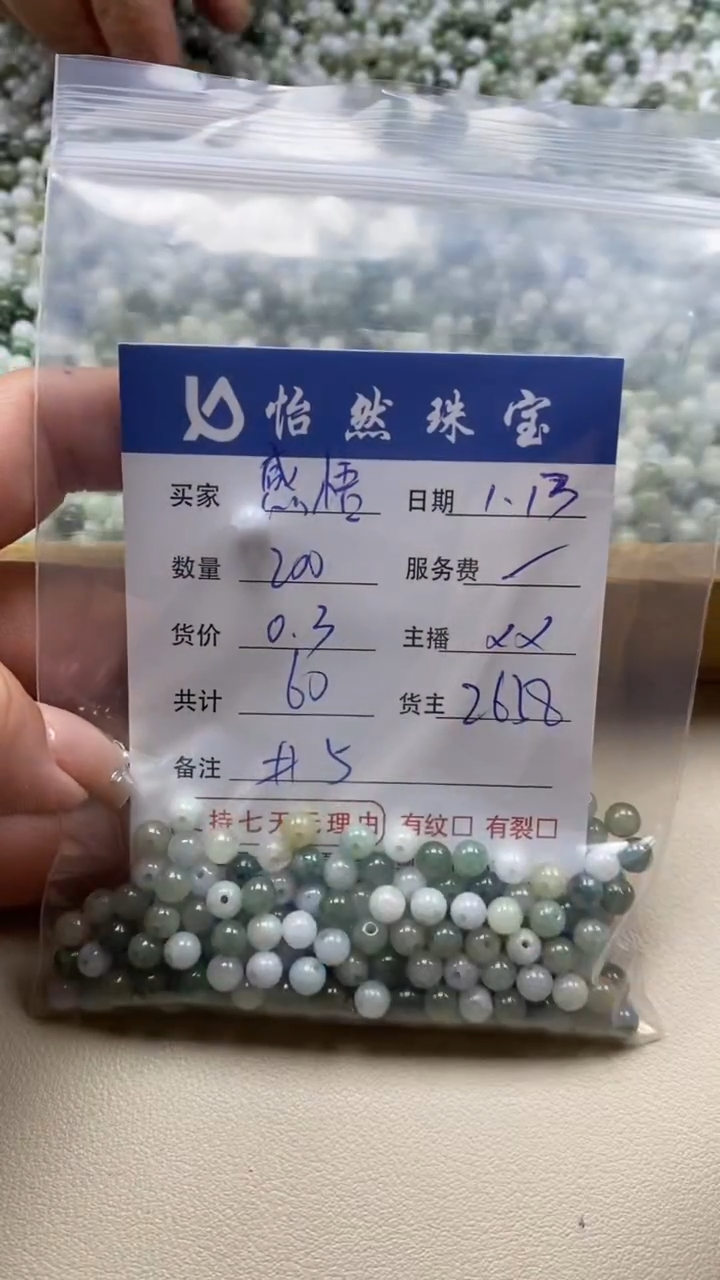 怡然珠宝
买家 感悟 日期 1.13
数量 200 服务费 /
货价 0.3 主播 XX
共计 60 货主 2658
备注 #5
持七天无理由 有纹□ 有裂□